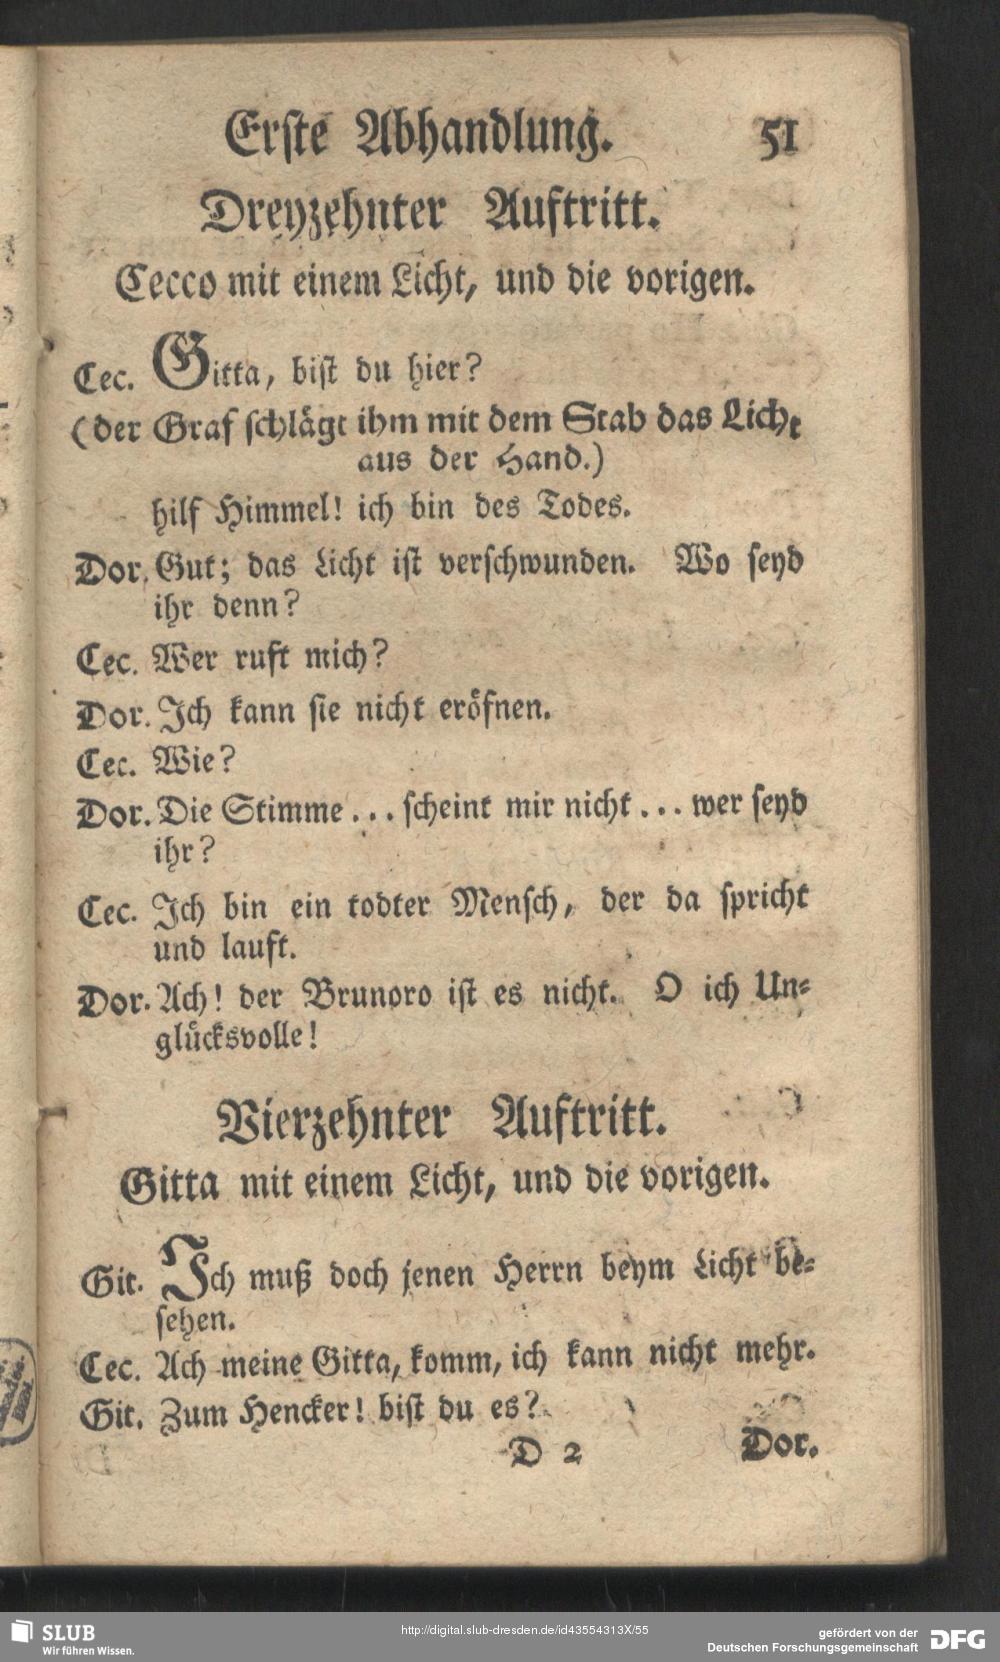 Erste Abhandlung. 51
Dreyzehnter Auftritt.
Cecco mit einem Licht, und die vorigen.
Cec. Gitta, bist du hier?
(der Graf schlägt ihm mit dem Stab das Licht
aus der Hand.)
hilf Himmel! ich bin des Todes.
Dor. Gut; das Licht ist verschwunden. Wo seyd
ihr denn?
Cec. Wer ruft mich?
Dor. Ich kann sie nicht eröfnen.
Cec. Wie?
Dor. Die Stimme... scheint mir nicht... wer seyd
ihr?
Cec. Ich bin ein todter Mensch, der da spricht
und lauft.
Dor. Ach! der Brunoro ist es nicht. O ich Un-
glücksvolle!
Vierzehnter Auftritt.
Gitta mit einem Licht, und die vorigen.
Git. Ich muß doch jenen Herrn beym Licht be-
sehen.
Cec. Ach meine Gitta, komm, ich kann nicht mehr.
Git. Zum Hencker! bist du es?
D 2 Dor.
SLUB
Wir führen Wissen.
http://digital.slub-dresden.de/id43554313X/55
gefördert von der
Deutschen Forschungsgemeinschaft
DFG